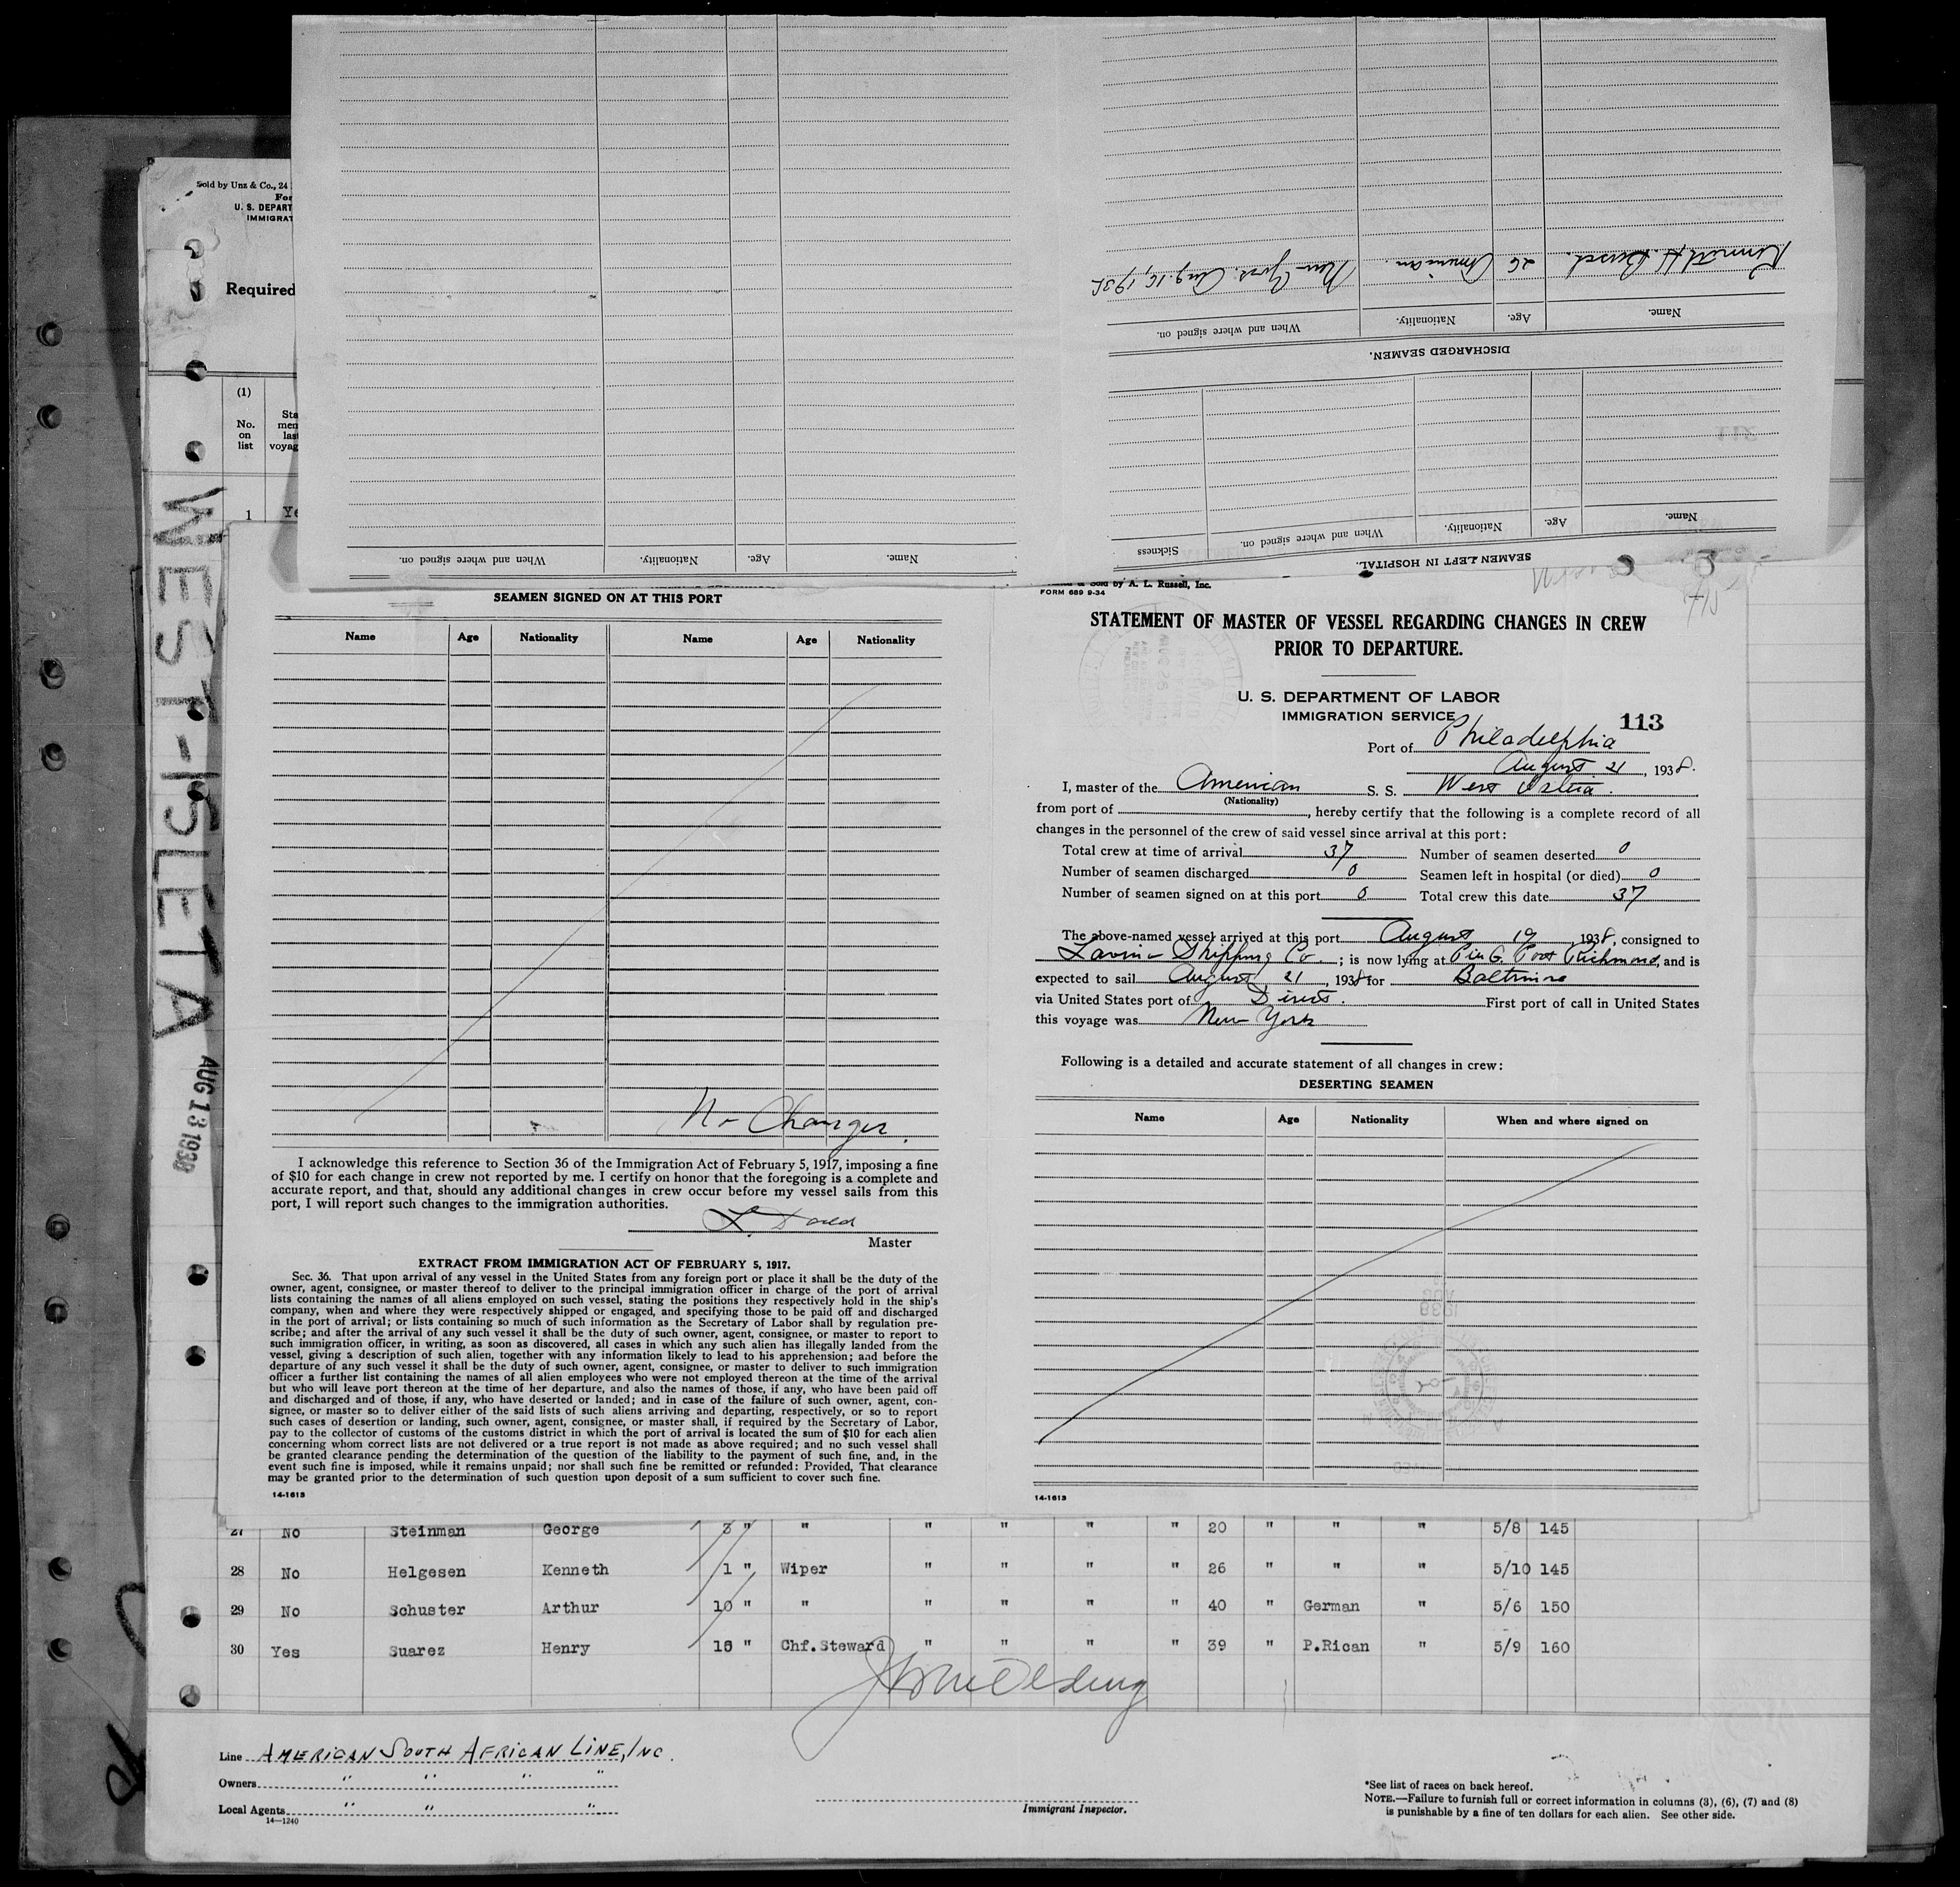 Sold by Unz & Co., 24
For
U. S. DEPART
IMMIGRAT
Required
(1)
No. on list
Sta men las voyag
1 Ye
WEST-ISLETA
AUG 13 1938
SEAMEN LEFT IN HOSPITAL.
Name. Age. Nationality. When and where signed on. Sickness
DISCHARGED SEAMEN.
Name. Age. Nationality. When and where signed on.
Kenneth H. 26 American. New York Aug. 16, 1938
Name. Age. Nationality. When and where signed on.
SEAMEN SIGNED ON AT THIS PORT
Name Age Nationality Name Age Nationality
No Changes.
I acknowledge this reference to Section 36 of the Immigration Act of February 5, 1917, imposing a fine
of $10 for each change in crew not reported by me. I certify on honor that the foregoing is a complete and
accurate report, and that, should any additional changes in crew occur before my vessel sails from this
port, I will report such changes to the immigration authorities.
Master
EXTRACT FROM IMMIGRATION ACT OF FEBRUARY 5, 1917.
Sec. 36. That upon arrival of any vessel in the United States from any foreign port or place it shall be the duty of the
owner, agent, consignee, or master thereof to deliver to the principal immigration officer in charge of the port of arrival
lists containing the names of all aliens employed on such vessel, stating the positions they respectively hold in the ship's
company, when and where they were respectively shipped or engaged, and specifying those to be paid off and discharged
in the port of arrival; or lists containing so much of such information as the Secretary of Labor shall by regulation pre-
scribe; and after the arrival of any such vessel it shall be the duty of such owner, agent, consignee, or master to report to
such immigration officer, in writing, as soon as discovered, all cases in which any such alien has illegally landed from the
vessel, giving a description of such alien, together with any information likely to lead to his apprehension; and before the
departure of any such vessel it shall be the duty of such owner, agent, consignee, or master to deliver to such immigration
officer a further list containing the names of all alien employees who were not employed thereon at the time of the arrival
but who will leave port thereon at the time of her departure, and also the names of those, if any, who have been paid off
and discharged and of those, if any, who have deserted or landed; and in case of the failure of such owner, agent, con-
signee, or master so to deliver either of the said lists of such aliens arriving and departing, respectively, or so to report
such cases of desertion or landing, such owner, agent, consignee, or master shall, if required by the Secretary of Labor,
pay to the collector of customs of the customs district in which the port of arrival is located the sum of $10 for each alien
concerning whom correct lists are not delivered or a true report is not made as above required; and no such vessel shall
be granted clearance pending the determination of the question of the liability to the payment of such fine, and, in the
event such fine is imposed, while it remains unpaid; nor shall such fine be remitted or refunded: Provided, That clearance
may be granted prior to the determination of such question upon deposit of a sum sufficient to cover such fine.
14-1613
Sold by A. L. Russell, Inc.
FORM 689 9-34
STATEMENT OF MASTER OF VESSEL REGARDING CHANGES IN CREW
PRIOR TO DEPARTURE.
U. S. DEPARTMENT OF LABOR
IMMIGRATION SERVICE
113
Port of Philadelphia
August 21, 1938.
I, master of the American S. S. West Isleta.
(Nationality)
from port of , hereby certify that the following is a complete record of all
changes in the personnel of the crew of said vessel since arrival at this port:
Total crew at time of arrival 37 Number of seamen deserted 0
Number of seamen discharged 0 Seamen left in hospital (or died) 0
Number of seamen signed on at this port 0 Total crew this date 37
The above-named vessel arrived at this port August 19, 1938, consigned to
Lavino Shipping Co. ; is now lying at Pier G. Port Richmond, and is
expected to sail August 21, 1938 for Baltimore
via United States port of Direct. First port of call in United States
this voyage was New York
Following is a detailed and accurate statement of all changes in crew:
DESERTING SEAMEN
Name Age Nationality When and where signed on
14-1613
27 No Steinman George 3 " " " " " " 20 " " " 5/8 145
28 No Helgesen Kenneth 1 " Wiper " " " " 26 " " " 5/10 145
29 No Schuster Arthur 10 " " " " " " 40 " German " 5/6 150
30 Yes Suarez Henry 18 " Chf.Steward " " " " 39 " P.Rican " 5/9 160
Line AMERICAN SOUTH AFRICAN LINE, INC.
Owners " " " "
Local Agents " " "
14-1240
Immigrant Inspector.
*See list of races on back hereof.
NOTE.—Failure to furnish full or correct information in columns (3), (6), (7) and (8)
is punishable by a fine of ten dollars for each alien. See other side.